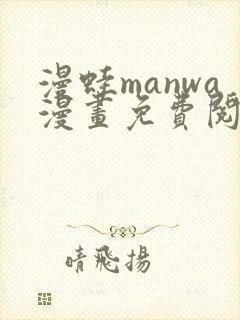 漫蛙manwa
漫畫免費閱
晴飛揚